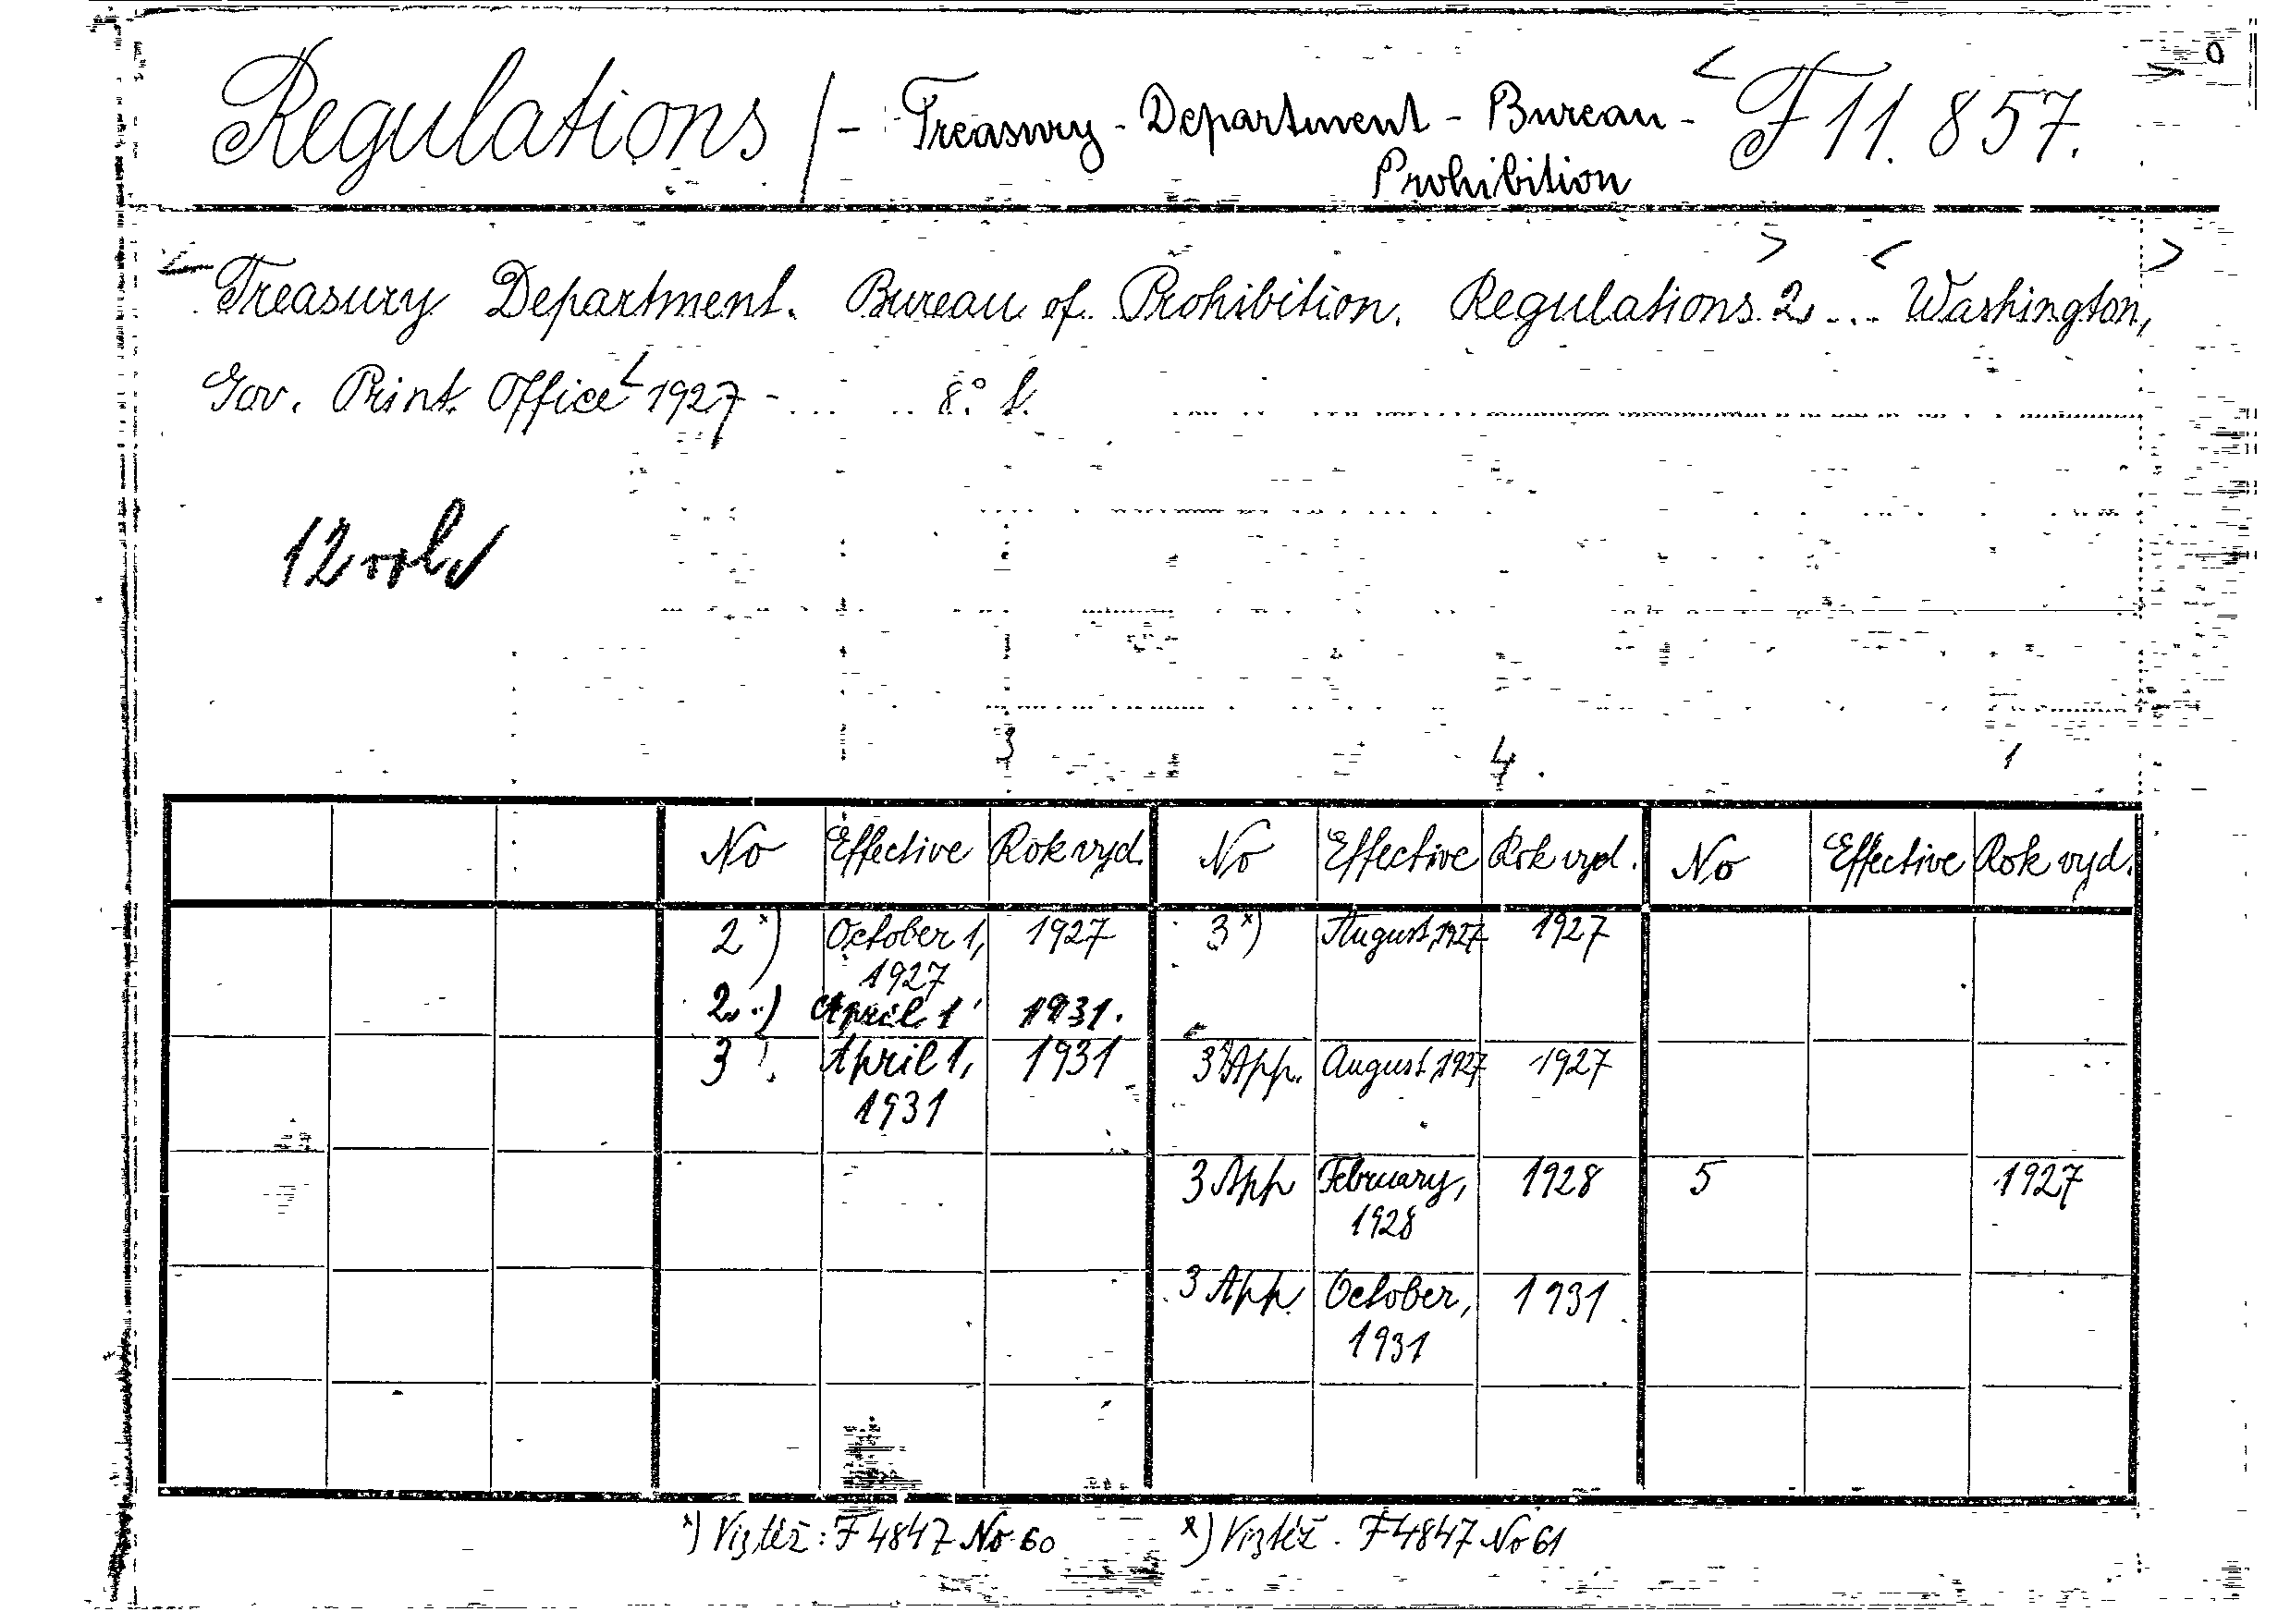 Regulations / - Treasury - Department - Bureau - < F 11.857. > 0
Prohibition
< Treasury Department. Bureau of Prohibition. Regulations 2... > < Washington, >
Gov. Print. Office < 1927 - ... .. 8° l.
3 4. 1
No Effective Rok vyd. No Effective Rok vyd. No Effective Rok vyd.
2 x) October 1, 1927 3 x) August, 1927 1927
1927
2. ..) April 1 1931.
3 April 1, 1931 3 App. August, 1927 1927
1931
3 App February, 1928 5 1927
1928
3 App. October, 1931
1931
x) Viz též: F 4847 No 60 x) Viz též. F 4847 No 61